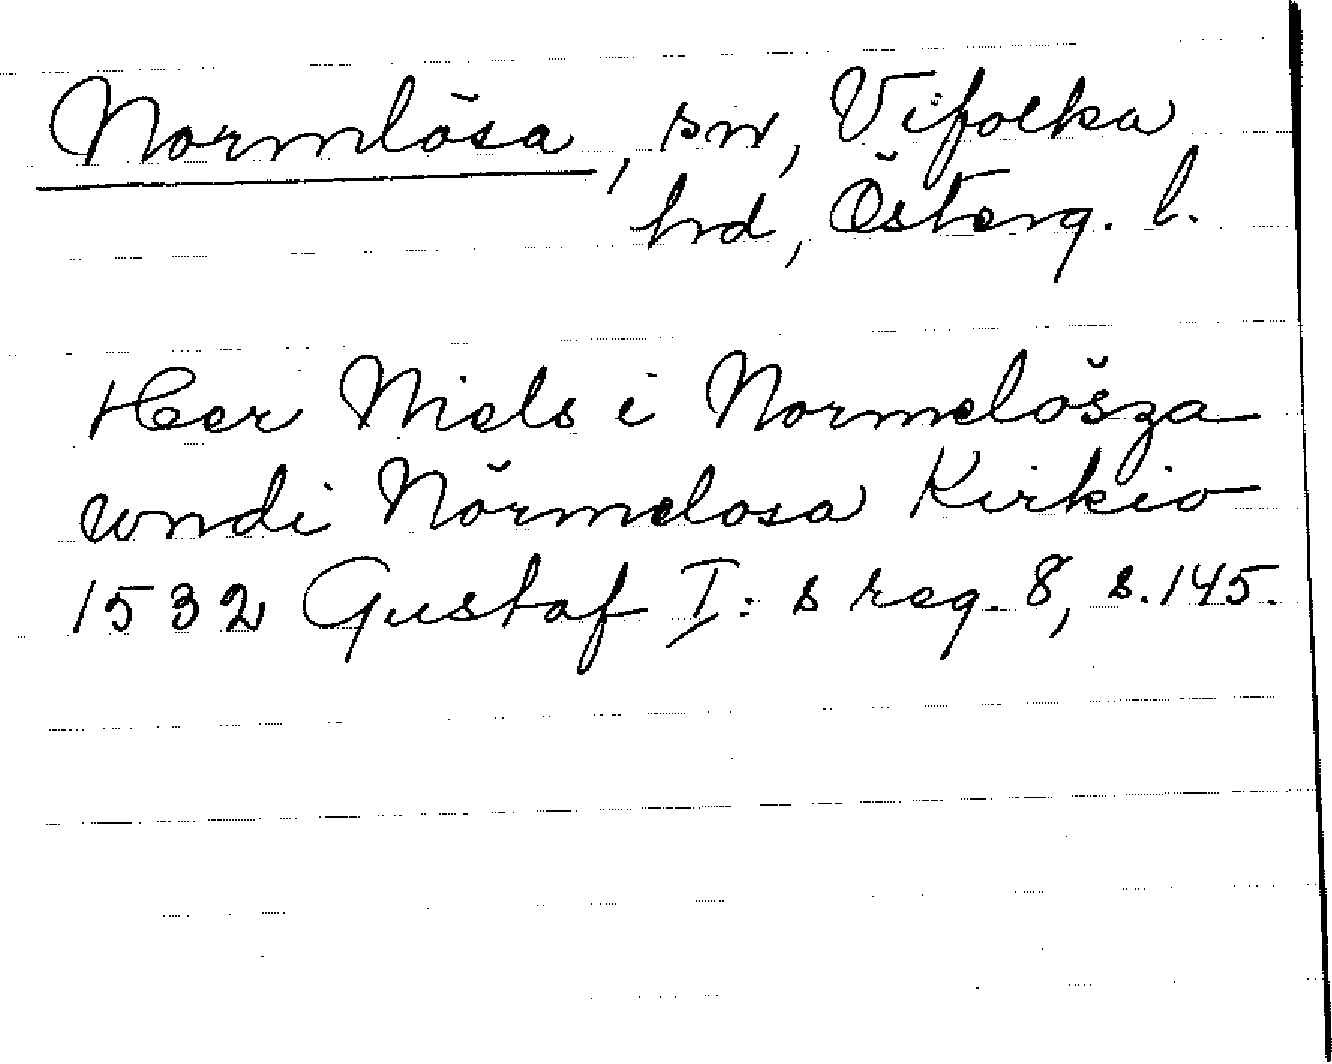 Normlösa, sn, Vifolka
hrd, Österg. l.
Heer Niels i Normelösza
wndi Nörmelosa Kirkio
1532 Gustaf I:s reg. 8, s. 145.